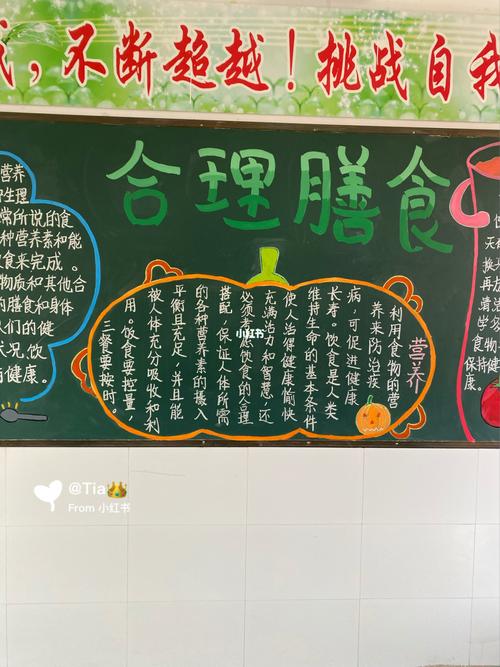 ，不断超越！挑战自我
合理膳食
营养
生理
常所说的食
种营养素和能
食来完成。
物质和其他合
的膳食和身体
人们的健
状况，饮
健康。
营养
利用食物的营
养来防治疾
病，可促进健康
长寿。饮食是人类
维持生命的基本条件
使人活得健康愉快
充满活力和智慧，还
必须注意饮食的合理
搭配，保证人体所需
的各种营养素的摄入
平衡且充足，并且能
被人体充分吸收和利
用。饮食要控量，
三餐要按时。
天
换
再
清
食物
保持健
康。
小红书
@Tia👑
From 小红书